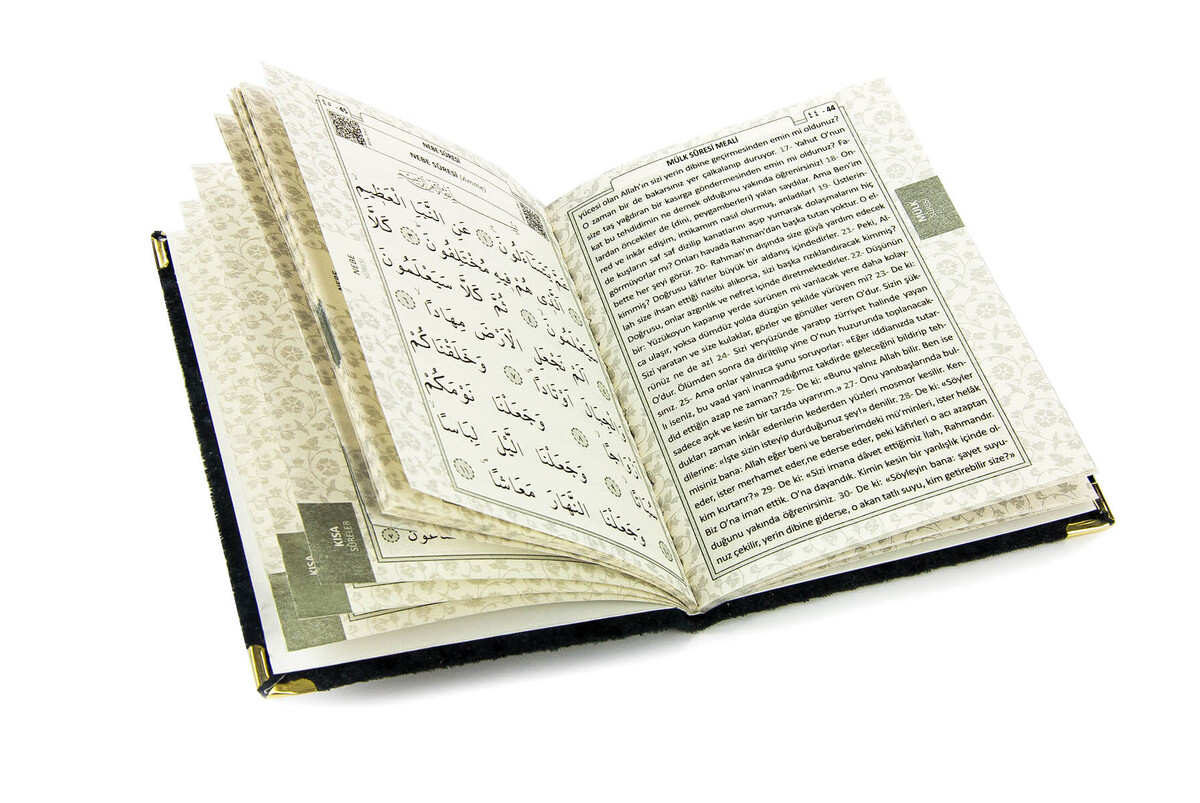 ٤٤ - 44
MÜLK SÛRESİ MEALİ
yücesi olan Allah'ın sizi yerin dibine geçirmesinden emin mi oldunuz?
O zaman bir de bakarsınız yer çalkalanıp duruyor. 17- Yahut O'nun
size taş yağdıran bir kasırga göndermesinden emin mi oldunuz? Fa-
kat bu tehdidimin ne demek olduğunu yakında öğrenirsiniz! 18- On-
lardan öncekiler de (dini, peygamberleri) yalan saydılar. Ama Ben'im
red ve inkâr edişim, intikamım nasıl olurmuş, anladılar! 19- Üstlerin-
de kuşların saf saf dizilip kanatlarını açıp yumarak dolaşmalarını hiç
görmüyorlar mı? Onları havada Rahman'dan başka tutan yoktur. O el-
bette her şeyi görür. 20- Rahman'ın dışında size gûyâ yardım edecek
kimmiş? Doğrusu kâfirler büyük bir aldanış içindedirler. 21- Peki, Al-
lah size ihsan ettiği nasibi alıkorsa, sizi başka rızıklandıracak kimmiş?
Doğrusu, onlar azgınlık ve nefret içinde diretmektedirler. 22- Düşünün
bir: Yüzükoyun kapanıp yerde sürünen mi varılacak yere daha kolay-
ca ulaşır, yoksa dümdüz yolda düzgün şekilde yürüyen mi? 23- De ki:
Sizi yaratan ve size kulaklar, gözler ve gönüller veren O'dur. Sizin şük-
rünüz ne de az! 24- Sizi yeryüzünde yaratıp zürriyet halinde yayan
O'dur. Ölümden sonra da diriltilip yine O'nun huzurunda toplanacak-
sınız. 25- Ama onlar yalnızca şunu soruyorlar: «Eğer iddianızda tutar-
lı iseniz, bu vaad yani inanmadığımız takdirde geleceğini bildirip teh-
did ettiğin azap ne zaman? 26- De ki: «Bunu yalnız Allah bilir. Ben ise
sadece açık ve kesin bir tarzda uyarırım.» 27- Onu yanıbaşlarında bul-
dukları zaman inkâr edenlerin kederden yüzleri mosmor kesilir. Ken-
dilerine: «İşte sizin isteyip durduğunuz şey!» denilir. 28- De ki: «Söyler
misiniz bana: Allah eğer beni ve beraberimdeki mü'minleri, ister helâk
eder, ister merhamet eder,ne ederse eder, peki kâfirleri o acı azaptan
kim kurtarır?» 29- De ki: «Sizi imana dâvet ettiğimiz ilah, Rahmandır.
Biz O'na iman ettik. O'na dayandık. Kimin kesin bir yanlışlık içinde ol-
duğunu yakında öğrenirsiniz. 30- De ki: «Söyleyin bana: şayet suyu-
nuz çekilir, yerin dibine giderse, o akan tatlı suyu, kim getirebilir size?»
MÜLK
SÛRESİ
٤٥ - 45
NEBE SÛRESİ
NEBE SÛRESİ (Amme)
عَمَّ يَتَسَٓاءَلُونَ ۝ عَنِ النَّبَأِ الْعَظِيمِ
اَلَّذِي هُمْ فِيهِ مُخْتَلِفُونَ ۝ كَلَّا
سَيَعْلَمُونَ ۝ ثُمَّ كَلَّا سَيَعْلَمُونَ
اَلَمْ نَجْعَلِ الْاَرْضَ مِهَادًا
وَالْجِبَالَ اَوْتَادًا ۝ وَخَلَقْنَاكُمْ
اَزْوَاجًا ۝ وَجَعَلْنَا نَوْمَكُمْ
وَجَعَلْنَا الَّيْلَ لِبَاسًا
وَجَعَلْنَا النَّهَارَ مَعَاشًا
NEBE
KISA
SÛRELER
KISA